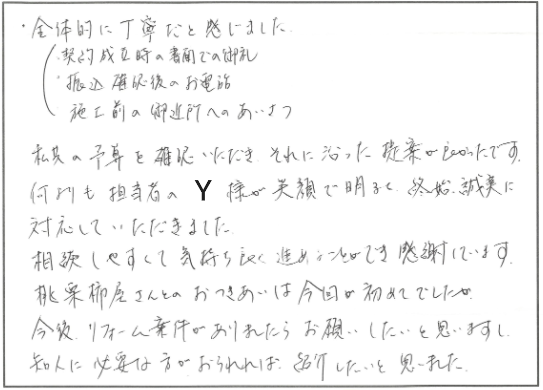 ・全体的に丁寧だと感じました。
・契約成立時の書面での御礼
・振込確認後のお電話
・施工前の御近所へのあいさつ
私共の予算を確認いただき、それに沿った提案が良かったです。
何よりも担当者のY様が笑顔で明るく、終始、誠実に
対応していただきました。
相談しやすくて気持ち良く進めることができ感謝しています。
桃栗柿屋さんとのおつきあいは今回が初めてでしたが
今後、リフォーム案件がありましたらお願いしたいと思いますし、
知人に必要な方がおられれば、紹介したいと思いました。